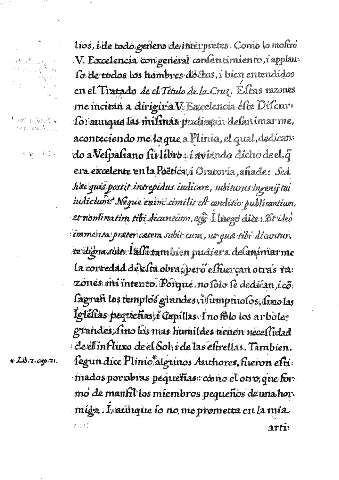 lios, i de todo genero de interpretes. Como lo mostró
V. Excelencia con general consentimiento, i applau-
so de todos los hombres doctos, i bien entendidos
en el Tratado de el Titulo de la Cruz. Estas razones
me incitan a dirigir a V. Excelencia éste Discur-
so: aunque las mismas pudieran desanimarme,
aconteciendo me lo que a Plinio, el qual, dedican-
do a Vespasiano su libro: i aviendo dicho de el, q̃
era excelente en la Poëtica, i Oratoria, añade: Sed
hæc quis possit intrepidus
iudicium? Neque enim similis est conditio publicantium,
et nominatim tibi dicantium, &c. I luego dize:
Iassi tambien pudiera desanimarme
la cortedad de ésta obra; pero esfuerçan otras ra-
zones mi intento. Porque no solo se dedican, i cõ-
sagran los templos grandes, i sumptuosos, sino las
Iglesias pequeñas, i Capillas. I no solo los arboles
grandes, sino los mas humildes tienen necessidad
de el influxo de el Sol, i de las estrellas. Tambien,
* Lib. 7. cap. 21.
segun dice Plinio,* algunos Authores, fueron esti-
mados por obras pequeñas: como el otro, que for-
mó de marfil los miembros pequeños de una hor-
miga. I aunque io no me prometa en la mia
arti-